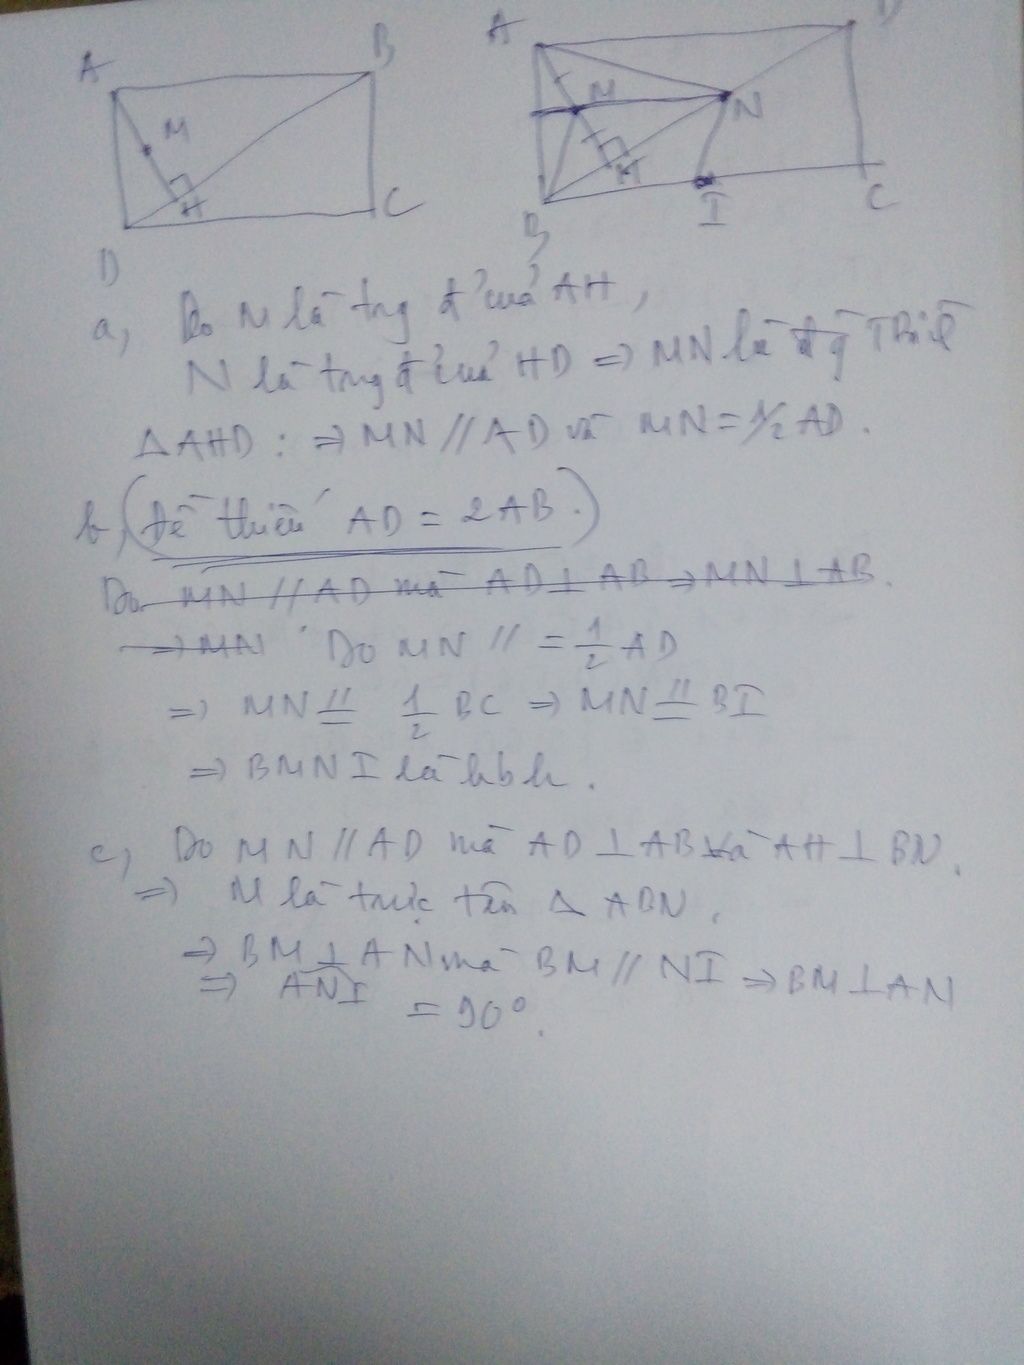 A B
M
H
D C
A D
M N
H
B I C
a, Do M là trg đ' của AH,
N là trg đ' của HD => MN là đg TBình
Δ AHD : => MN // AD và MN = 1/2 AD.
b, (Đề thiếu AD = 2AB.)
Do MN // AD mà AD ⊥ AB => MN ⊥ AB.
=> MN Do MN // = 1/2 AD
=> MN //= 1/2 BC => MN //= BI
=> BMNI là hbh.
c, Do MN // AD mà AD ⊥ AB và AH ⊥ BN.
=> M là trực tâm Δ ABN.
=> BM ⊥ AN mà BM // NI => BM ⊥ AN
=> ANI = 90°.